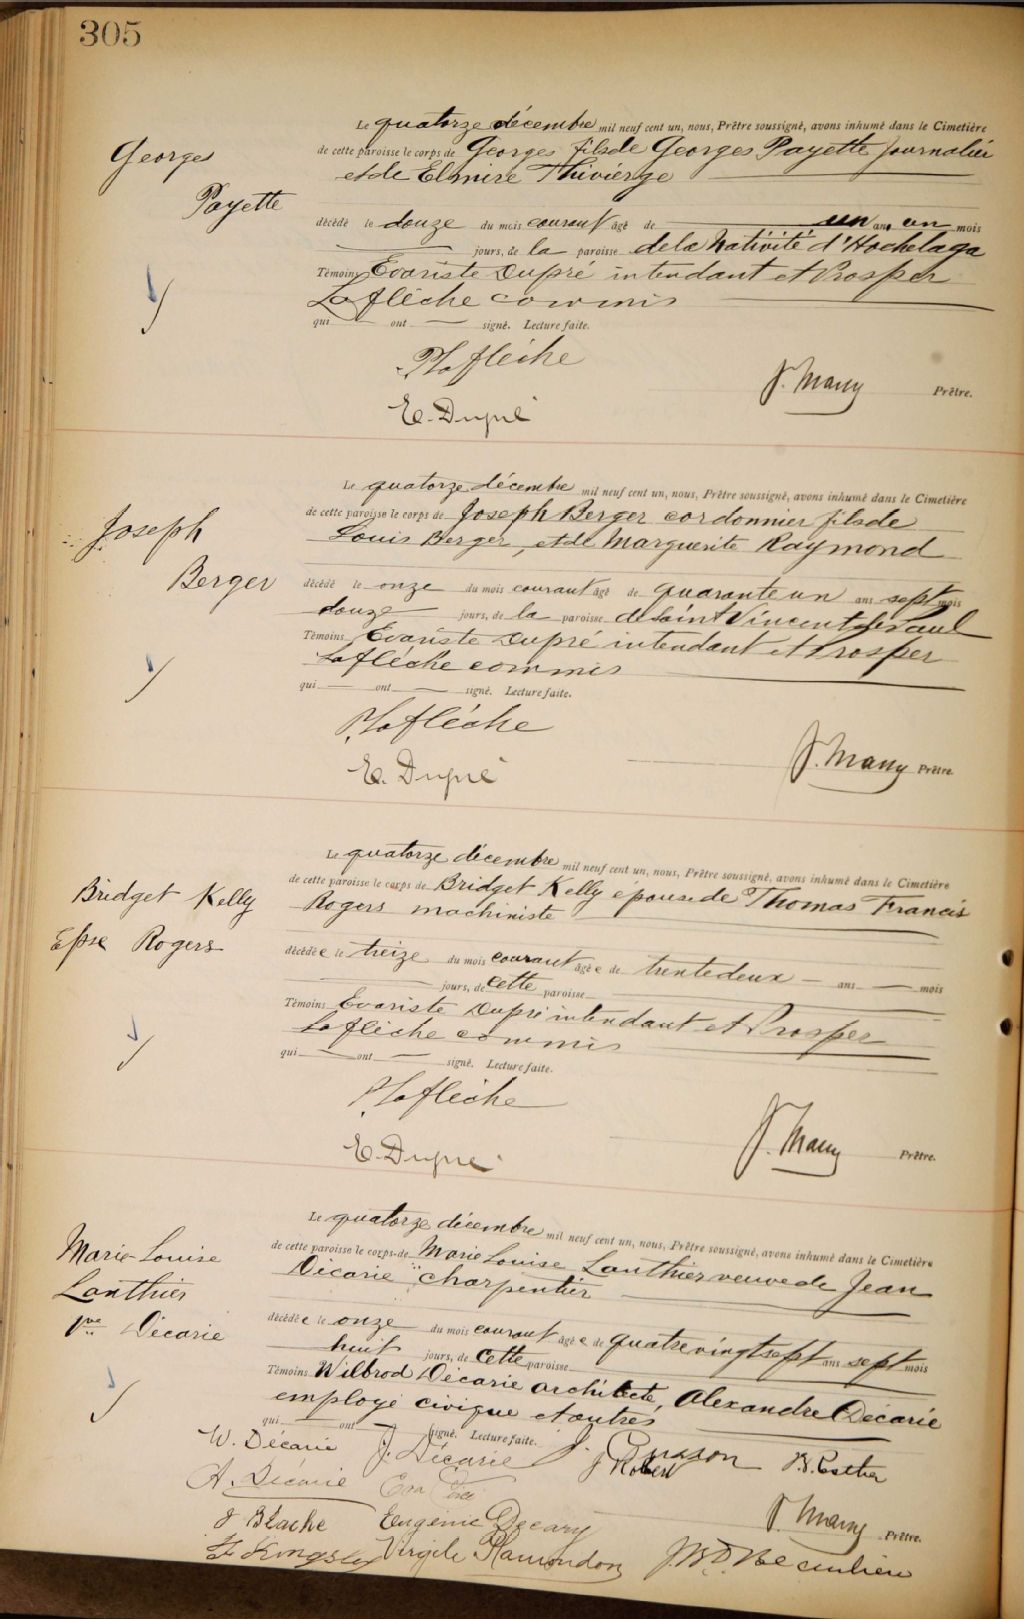 305
Le quatorze décembre mil neuf cent un, nous, Prêtre soussigné, avons inhumé dans le Cimetière
George
de cette paroisse le corps de Georges fils de Georges Payette journalier
et de Elmire Thivièrge
Payette
décédé le douze du mois courant âgé de un an, un mois
jours, de la paroisse de la Nativité d'Hochelaga
Témoins Evariste Dupré intendant et Prosper
Laflèche commis
qui ont signé. Lecture faite.
P. Laflèche
J. Mauy Prêtre.
E. Dupré
Le quatorze décembre mil neuf cent un, nous, Prêtre soussigné, avons inhumé dans le Cimetière
Joseph
de cette paroisse le corps de Joseph Berger cordonnier fils de
Louis Berger, et de Marguerite Raymond
Berger
décédé le onze du mois courant âgé de quarante un ans sept mois
douze jours, de la paroisse de Saint Vincent de Paul
Témoins Evariste Dupré intendant et Prosper
Laflèche commis
qui ont signé. Lecture faite.
P. Laflèche
J. Mauy Prêtre.
E. Dupré
Le quatorze décembre mil neuf cent un, nous, Prêtre soussigné, avons inhumé dans le Cimetière
Bridget Kelly
de cette paroisse le corps de Bridget Kelly épouse de Thomas Francis
Rogers machiniste
Epse Rogers
décédée le treize du mois courant âgée de trente deux ans mois
jours, de cette paroisse
Témoins Evariste Dupré intendant et Prosper
Laflèche commis
qui ont signé. Lecture faite.
P. Laflèche
J. Mauy Prêtre.
E. Dupré
Le quatorze décembre mil neuf cent un, nous, Prêtre soussigné, avons inhumé dans le Cimetière
Marie-Louise
de cette paroisse le corps de Marie Louise Lanthier veuve de Jean
Décarie charpentier
Lanthier
Vve Décarie
décédée le onze du mois courant âgée de quatre vingt sept ans sept mois
huit jours, de cette paroisse
Témoins Wilbrod Décarie architecte, Alexandre Décarie
employé civique et autres
qui ont signé. Lecture faite.
W. Décarie J. Décarie J. Brisson
J Robert
A. Décarie
J. Mauy Prêtre.
J Blache Eugénie Decary
F Kingsley Virgile Plamondon